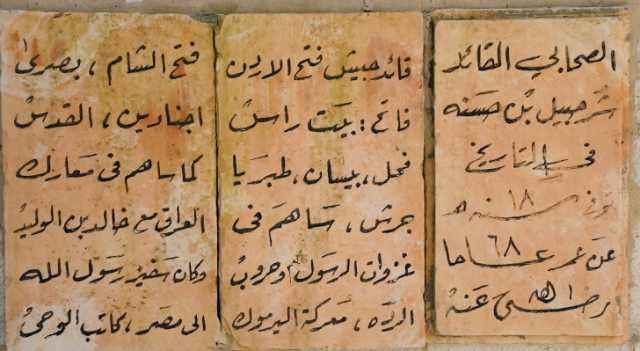 الصحابي القائد
شرحبيل بن حسنه
في التاريخ
توفى سنه ١٨ هـ
عن عمر ٦٨ عاما
رضي الله عنه
قائد جيش فتح الاردن
فاتح: بيت راس
فحل، بيسان، طبريا
جرش، ساهم في
غزوات الرسول وحروب
الرده، معركة اليرموك
فتح الشام، بصرى
اجنادين، القدس
كما ساهم في معارك
العراق مع خالد بن الوليد
وكان سفير رسول الله
الى مصر، كاتب الوحي